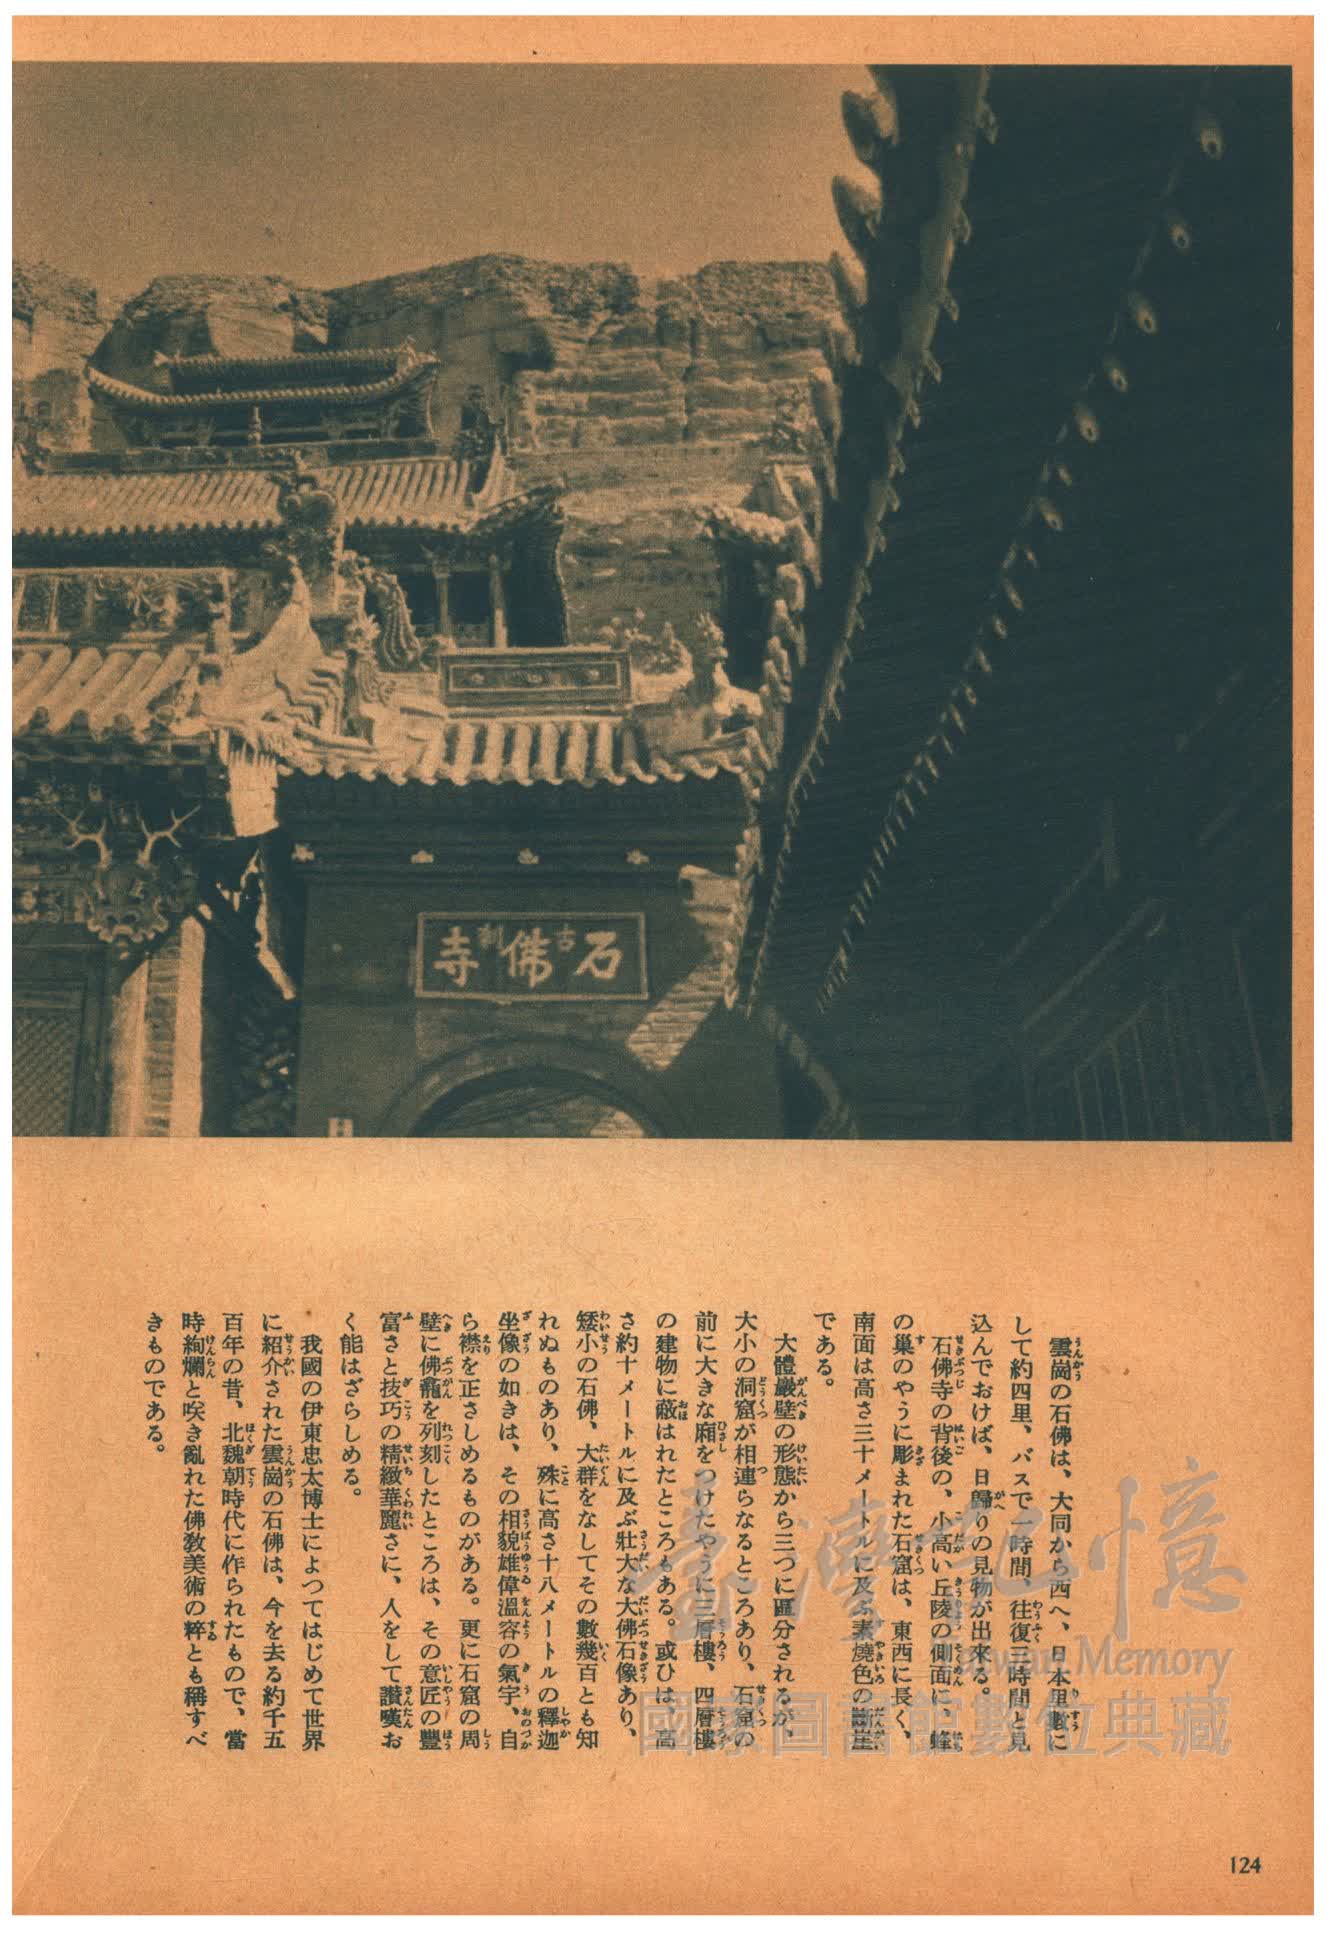 石佛寺
古刹
雲崗の石佛は、大同から西へ、日本里數に
して約四里、バスで一時間、往復三時間と見
込んでおけば、日歸りの見物が出來る。
石佛寺の背後の、小高い丘陵の側面に、蜂
の巢のやうに彫まれた石窟は、東西に長く、
南面は高さ三十メートルに及ぶ素燒色の斷崖
である。
大體巖壁の形態から三つに區分されるが、
大小の洞窟が相連らなるところあり、石窟の
前に大きな廂をつけたやうに三層樓、四層樓
の建物に蔽はれたところもある。或ひは、高
さ約十メートルに及ぶ壯大な大佛石像あり、
矮小の石佛、大群をなしてその數幾百とも知
れぬものあり、殊に高さ十八メートルの釋迦
坐像の如きは、その相貌雄偉溫容の氣宇、自
ら襟を正さしめるものがある。更に石窟の周
壁に佛龕を列刻したところは、その意匠の豐
富さと技巧の精緻華麗さに、人をして讃嘆お
く能はざらしめる。
我國の伊東忠太博士によつてはじめて世界
に紹介された雲崗の石佛は、今を去る約千五
百年の昔、北魏朝時代に作られたもので、當
時絢爛と咲き亂れた佛敎美術の粹とも稱すべ
きものである。
臺灣記憶
Taiwan Memory
國家圖書館數位典藏
124